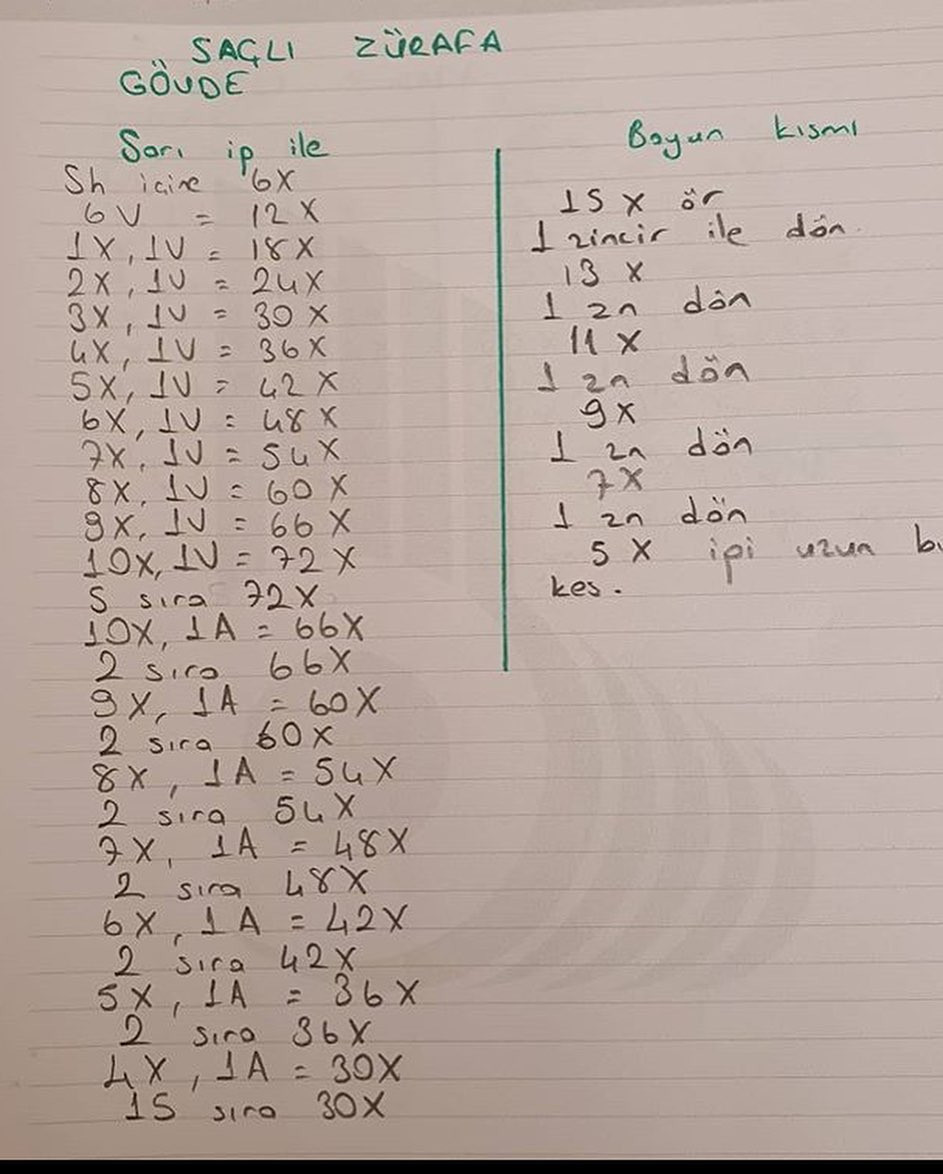 SAÇLI ZÜRAFA
GÖVDE
Sarı ip ile
Sh içine 6X
6V = 12X
1X, 1V = 18X
2X, 1V = 24X
3X, 1V = 30X
4X, 1V = 36X
5X, 1V = 42X
6X, 1V = 48X
7X, 1V = 54X
8X, 1V = 60X
9X, 1V = 66X
10X, 1V = 72X
5 sıra 72X
10X, 1A = 66X
2 sıra 66X
9X, 1A = 60X
2 sıra 60X
8X, 1A = 54X
2 sıra 54X
7X, 1A = 48X
2 sıra 48X
6X, 1A = 42X
2 sıra 42X
5X, 1A = 36X
2 sıra 36X
4X, 1A = 30X
15 sıra 30X
Boyun kısmı
15 X ör
1 zincir ile dön.
13 X
1 zn dön
11 X
1 zn dön
9X
1 zn dön
7X
1 zn dön
5 X ipi uzun
kes.